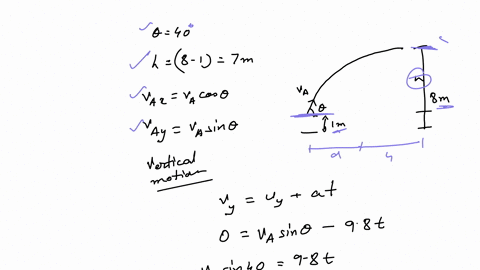 θ = 40°
h = (8-1) = 7m
v_Ax = v_A cosθ
v_Ay = v_A sinθ
vertical
motion
v_A
θ
1m
h
8m
d
4
v_y = u_y + at
0 = v_A sinθ - 9.8t
v_A sin40 = 9.8t